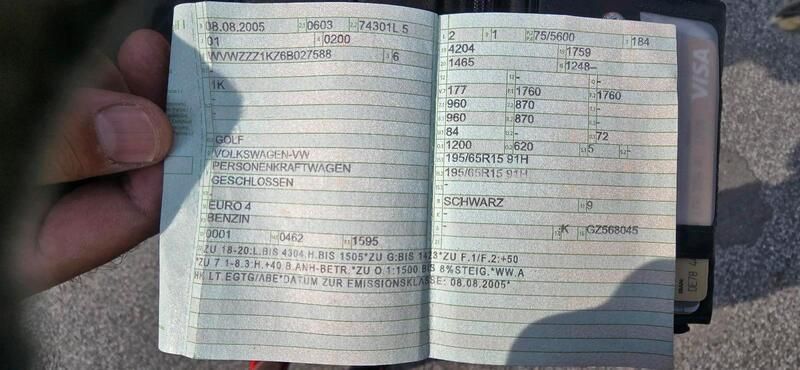 08.08.2005 0603 74301L 5
01 0200
WVWZZZ1KZ6B027588 6
-
1K
GOLF
VOLKSWAGEN-VW
PERSONENKRAFTWAGEN
GESCHLOSSEN
-
EURO 4
BENZIN
0001 0462 1595
2 1 75/5600 184
4204 1759
1465 1248-
- -
177 1760 1760
960 870 -
960 870 -
84 - 72
1200 620 5 -
195/65R15 91H
195/65R15 91H
-
SCHWARZ 9
-
- K GZ568045
*ZU 18-20:L.BIS 4304 H.BIS 1505*ZU G:BIS 1423*ZU F.1/F.2:+50
*ZU 7.1-8.3:H.+40 B.ANH-BETR.*ZU O.1:1500 BIS 8%STEIG.*WW.A
HK LT.EGTG/ABE*DATUM ZUR EMISSIONSKLASSE: 08.08.2005*
VISA
IBAN DE78